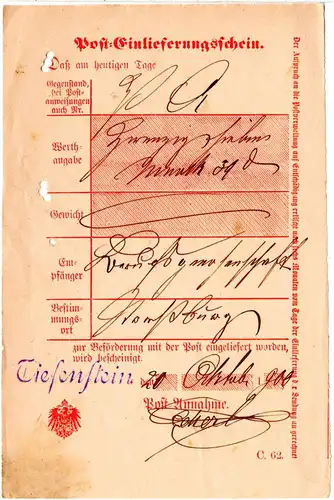 Post-Einlieferungsschein.
Daß am heutigen Tage
Gegenstand,
bei Post-
anweisungen
auch Nr.
Werth-
angabe
Mark 39 d
Gewicht
Em-
pfänger
Berufsgenossenschaft
Bestim-
mungs-
ort
Straßburg
zur Beförderung mit der Post eingeliefert worden,
wird bescheinigt.
Tiefenstein 20 Oktob 1900
Post-Annahme.
C. 62.
Der Anspruch an die Postverwaltung auf Entschädigung erlischt mit sechs Monaten vom Tage der Einlieferung der Sendung an gerechnet